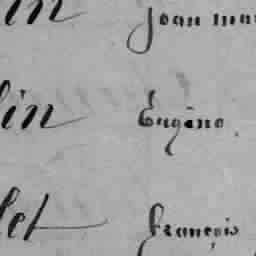 in Joan mar
lin Eugène.
let François